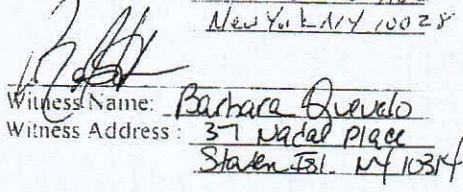 New York NY 10028
Witness Name: Barbara Quevedo
Witness Address : 37 Nadal Place
Staten Isl. NY 10314